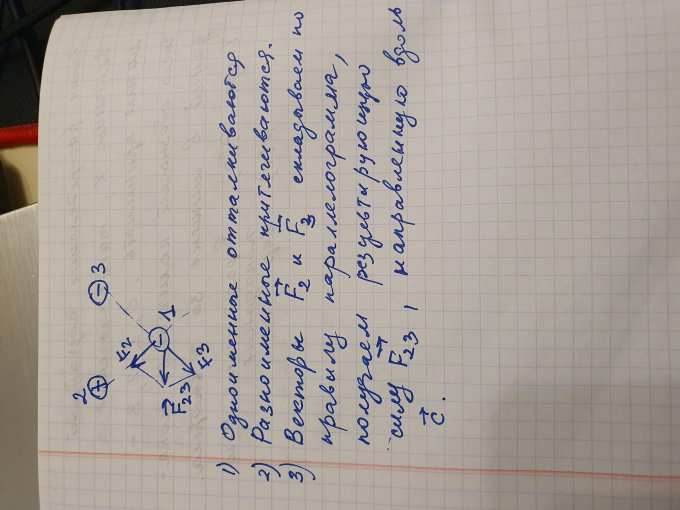 2
+
3
−
1
−
F2
F3
F23
1) Одноименные отталкиваются
2) Разноименные притягиваются.
3) Векторы F2 и F3 складываем по
правилу параллелограмма,
получаем результирующую
силу F23, направленную вдоль
c.